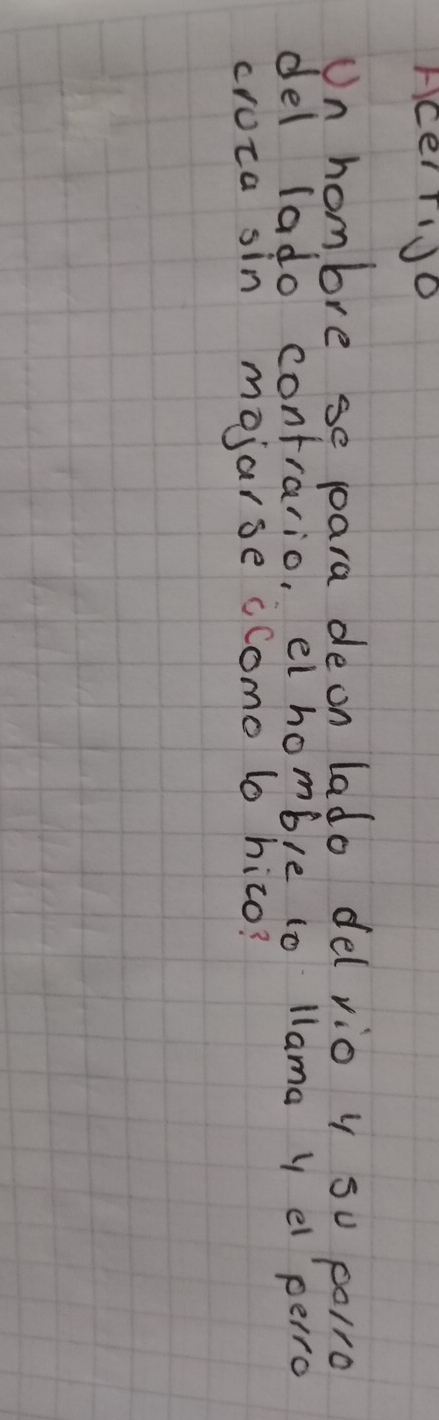 Acertijo
Un hombre se para de un lado del rio y su perro
del lado contrario, el hombre lo llama y el perro
cruza sin mojarse ¿Como lo hizo?